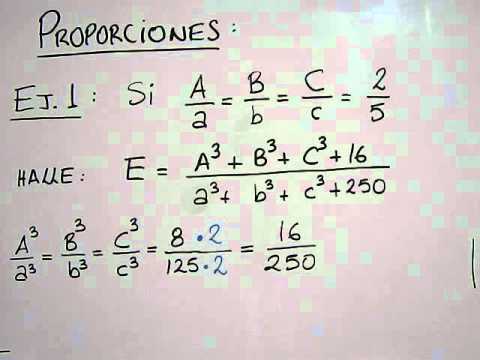 PROPORCIONES:
EJ. 1: Si A/a = B/b = C/c = 2/5
HALLE: E = (A³ + B³ + C³ + 16)/(a³ + b³ + c³ + 250)
A³/a³ = B³/b³ = C³/c³ = (8 · 2)/(125 · 2) = 16/250